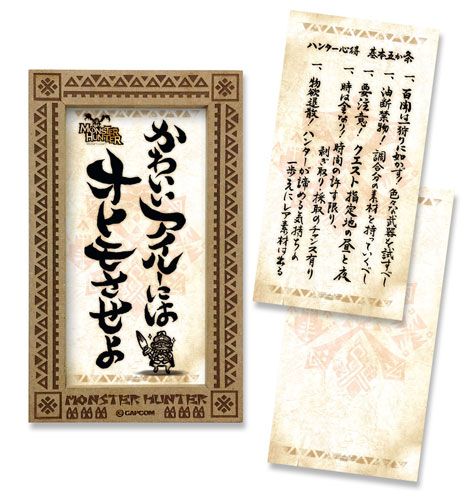 MONSTER
HUNTER
かわいいアイルーには
オトモさせよ
MONSTER HUNTER
©CAPCOM
ハンター心得 基本五か条
一、百聞は狩りに如かず 色々な武器を試すべし
一、油断禁物! 調合分の素材を持っていくべし
一、要注意! クエスト指定地の昼と夜
一、時は金なり! 時間の許す限り、
剥ぎ取り採取のチャンス有り
一、物欲退散 ハンターが諦める気持ちの
一歩ふえにレア素材は出る